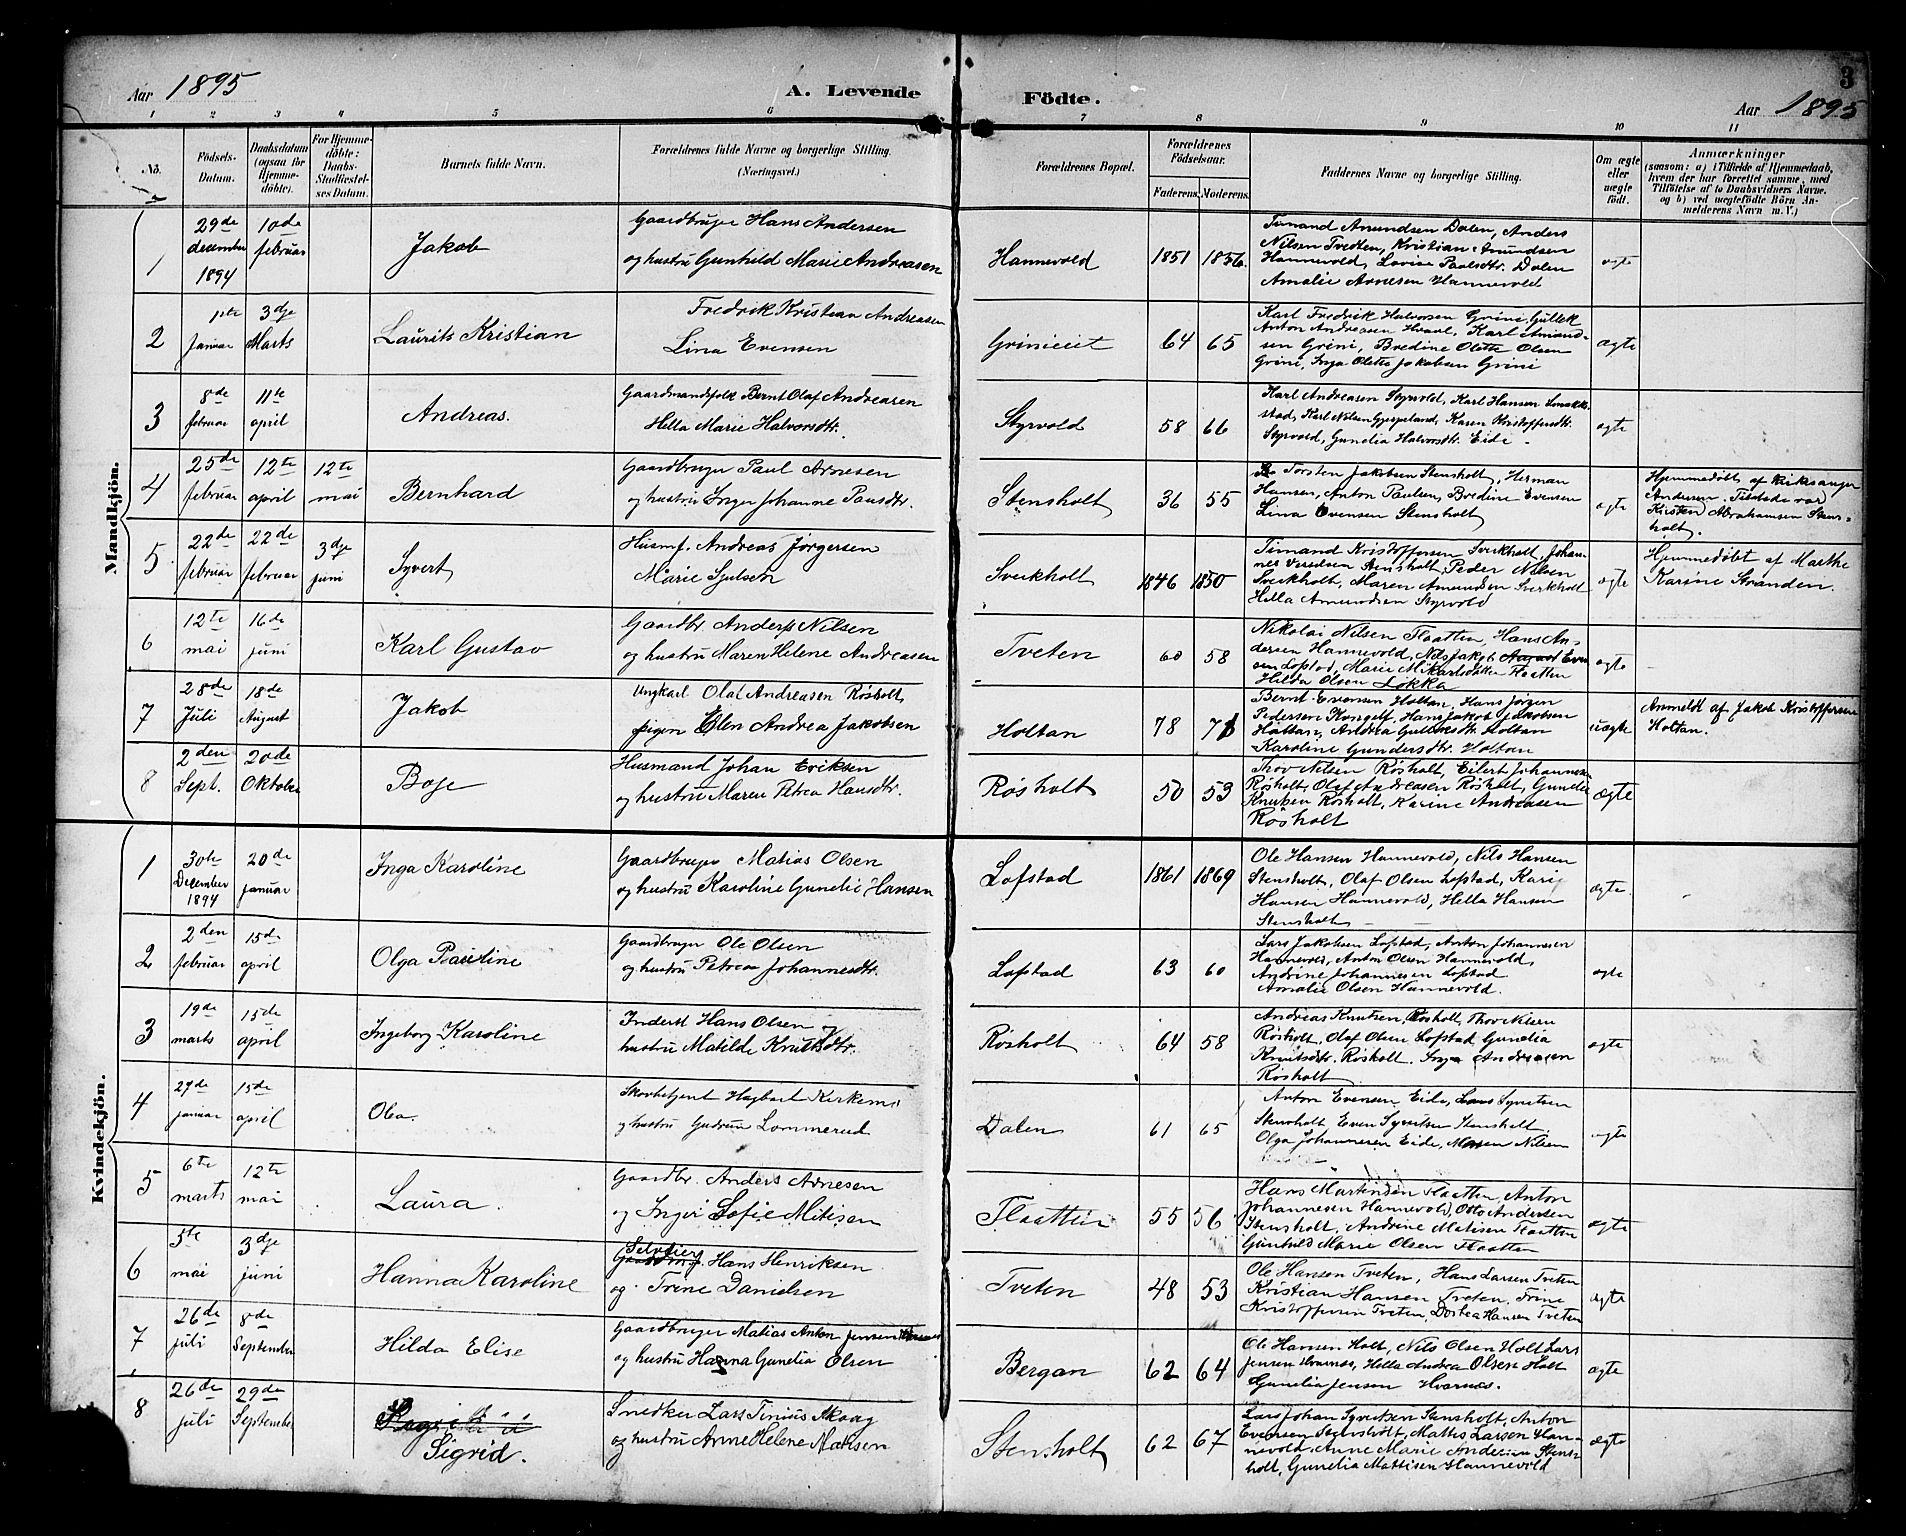 Aar 1895
A. Levende
Födte.
3
Aar 1895
1 2 3 4 5 6 7 8 9 10 11
No.
Födsels-
Datum.
Daabsdatum
(ogsaa for
Hjemme-
döbte).
For Hjemme-
döbte:
Daabs-
Stadfæstel-
ses Datum.
Barnets fulde Navn.
Forældrenes fulde Navne og borgerlige Stilling.
(Næringsvei.)
Forældrenes Bopæl.
Forældrenes
Födselsaar.
Faderens.
Moderens.
Faddernes Navne og borgerlige Stilling.
Om ægte
eller
uægte
födt.
Anmærkninger
(saasom: a) i Tilfælde af Hjemmedaab,
hvem der har forrettet samme, med
Tilföielse af to Daabsvidners Navne.
og b) ved uægtefödte Börn An-
melderens Navn m. V.)
Mandkjön.
1
29de
december
1894
10de
februar
Jakob
Gaardbruger Hans Andersen
og hustru Gunhild Marie Andreasen
Hannevold
1851 1856.
Timand Amundsen Dalen, Anders
Nilsen Tvedten, Kristian Amundsen
Hannevold, Lovise Paalsdtr. Dalen
Amalie Arnesen Hannevold
ægte
2
1ste
Januar
3dje
Marts
Laurits Kristian
Fredrik Kristian Andreasen
Lina Evensen
Grinieeit
64 65
Karl Fredrik Halvorsen Grini, Gullek
Anton Andreasen Hvaal, Karl Amand-
sen Grini, Bredine Olette Olsen
Grini, Inga Olette Jakobsen Grini
ægte
3
8de
februar
11te
april
Andreas.
Gaardmandsfolk Bernt Olaf Andreasen
Hella Marie Halvorsdtr.
Styrvold
58 66
Karl Andreasen Styrvold, Karl Hansen Smakk-
stad, Karl Nilsen Gjerpeland, Karen Kristoffersdtr.
Styrvold, Gunelia Halvorsdtr. Eide -
ægte
4
25de
februar
12te
april
12te
mai
Bernhard
Gaardbruger Paul Arnesen
og hustru Inger Johanne Paulsdtr.
Stensholt
36 55
Torsten Jakobsen Stensholt, Herman
Hansen, Anton Paulsen, Bredine Evensen
Lina Evensen Stensholt
ægte
Hjemmedöbt af Kirksanger
Andersen. Tilstede var
Kirsten Abrahamsen Stens-
holt.
5
22de
februar
22de
februar
3dje
juni
Syvert
Husmf. Andreas Jörgersen
Marie Sjulsen
Sverkholt
1846 1850
Timand Kristoffersen Sverkholt, Johan-
nes Stensholt, Peder Nilsen
Sverkholt, Maren Amundsen Sverkholt
Hella Amundsen Styrvold
ægte
Hjemmedöbt af Marthe
Karine Stranden.
6
12te
mai
16de
juni
Karl Gustav
Gaardbr. Anders Nilsen
og hustru Maren Helene Andreasen
Tveten
60 58
Nikolai Nilsen Flaatten, Hans An-
dersen Hannevold, Nils Jakob August Even
sen Lofstad, Marie Mikaelsdatter Flaatten
Hilda Olsen Lökka
ægte
7
28de
Juli
18de
August
Jakob
Ungkarl Olaf Andreasen Rösholt
pigen Elen Andrea Jakobsen
Holtan
78 71
Bernt Evensen Holtan, Hans Jörgen
Pedersen Kongelf, Hans Jakob Jakobsen
Holtan, Andrea Gulliksdtr. Holtan
Karoline Gundersdtr. Holtan
uægte
Anmeldt af Jakob Kristoffersen
Holtan.
8
2den
Sept.
20de
Oktober
Boje
Husmand Johan Eriksen
og hustru Maren Petrea Hansdtr.
Rösholt
50 53
Thov Nilsen Rösholt, Eilert Johannesen
Rösholt, Olaf Andreasen Rösholt, Gunelie
Knutsen Rösholt, Karine Andreasen
Rösholt
ægte
Kvindekjön.
1
30te
December
1894
20de
januar
Inga Karoline
Gaardbruger Matias Olsen
og hustru Karoline Gunelie Hansen
Lofstad
1861 1869
Ole Hansen Hannevold, Nils Hansen
Stensholt, Olaf Olsen Lofstad, Kari
Hansen Hannevold, Hella Hansen
Stensholt
ægte.
2
2den
februar
15de
april
Olga Pauline
Gaardbruger Ole Olsen
og hustru Petrea Johannesdtr.
Lofstad
63 60
Lars Jakobsen Lofstad, Anton Johannesen
Hannevold, Anton Olsen Hannevold,
Andrine Johannesen Lofstad
Amalie Olsen Hannevold.
ægte
3
19de
marts
15de
april
Ingeborg Karoline
Inderst Hans Olsen og
hustru Matilde Knutsdtr.
Rösholt
64 58
Andreas Knutsen, Rösholt, Thov Nilsen
Rösholt, Olaf Olsen Lofstad Gunelia
Knutsdtr. Rösholt. Inga Andreasen
Rösholt
ægte
4
27de
januar
15de
april
Oba
Skovbetjent Hagbart Kirkemo
og hustru Gudrun Lommerud
Dalen
61 65
Anton Evensen Eide, Lars Syvertsen
Stensholt Even Syvertsen Stensholt
Olga Johannesen Eide, Maren Nilsen
ægte
5
6te
marts
12te
mai
Laura.
Gaardbr. Anders Arnesen
og Inger Sofie Mitisen
Flaatten
55 56
Hans Martinsen Flaatten, Anton
Johannesen Hannevold, Otto Andersen
Stensholt, Andrine Matisen Flaatten
Gunhild Marie Olsen Flaatten
ægte
6
5te
mai
3dje
juni
Hanna Karoline
Selveier
Gaardbrug. Hans Henriksen
og Trine Danielsen
Tveten
48 53
Ole Hansen Tveten, Hans Larsen Tveten
Kristian Hansen Tveten, Trine
Kristoffersen Tveten, Dorthea Hansen Tveten
ægte
7
26de
juli
8de
September
Hilda Elise
Gaardbruger Matias Anton Jensen
og hustru Hanna Gunelia Olsen
Bergan
62 64
Ole Hansen Holt, Nils Olsen Holt Lars
Jensen Hvarnes, Hella Andrea Olsen Holt
Gunelia Jensen Hvarnes.
ægte
8
26de
juli
29de
September
Sigrid.
Snedker Lars Tinius Skoag
og hustru Anne Helene Matisen
Stensholt
62 67
Lars Johan Syvertsen Stensholt, Anton
Evensen Stensholt, Mathis Larsen Han-
nevold, Anne Marie Andersen Stens-
holt, Gunelia Mattisen Hannevold
ægte